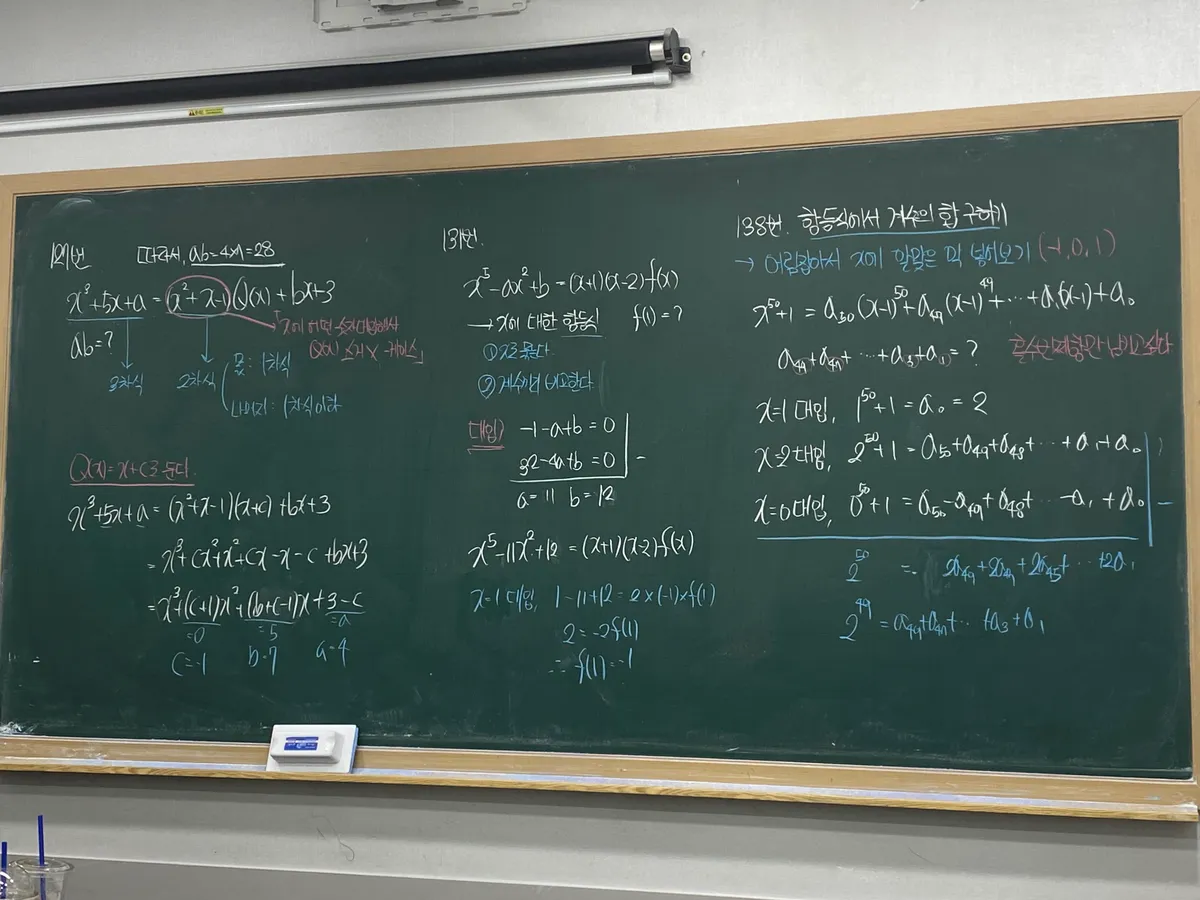 129번
따라서, ab=4×7=28
x³+5x+a = (x²+x-1)Q(x)+bx+3
ab=?
x에 어떤 숫자 대입해서
Q(x) 소거 X
3차식
2차식
몫: 1차식
나머지: 1차식이하
Q(x)=x+c로 둔다.
x³+5x+a = (x²+x-1)(x+c)+bx+3
= x³+cx²+x²+cx-x-c+bx+3
= x³+(c+1)x²+(b+c-1)x+3-c
=0 =5 =a
c=-1 b=7 a=4
131번.
x⁵-ax²+b=(x+1)(x-2)f(x)
→ x에 대한 항등식 f(1)=?
①
② 계수끼리 비교한다.
대입) -1-a+b=0
32-4a+b=0 -
a=11 b=12
x⁵-11x²+12=(x+1)(x-2)f(x)
x=1 대입, 1-11+12=2×(-1)×f(1)
2=-2f(1)
∴ f(1)=-1
138번. 항등식에서 계수의 합 구하기
→ 어림잡아서 x에 알맞은 막 넣어보기 (-1,0,1)
x⁵⁰+1 = a₅₀(x-1)⁵⁰+a₄₉(x-1)⁴⁹+⋯+a₁(x-1)+a₀
a₄₉+a₄₇+⋯+a₃+a₁=?
홀수번째항만 남기고 싶다
x=1 대입, 1⁵⁰+1=a₀=2
x=2 대입, 2⁵⁰+1=a₅₀+a₄₉+a₄₈+⋯+a₁+a₀
x=0 대입, 0⁵⁰+1=a₅₀-a₄₉+a₄₈+⋯-a₁+a₀ -
2⁵⁰ = 2a₄₉+2a₄₇+2a₄₅+⋯+2a₁
2⁴⁹=a₄₉+a₄₇+⋯+a₃+a₁